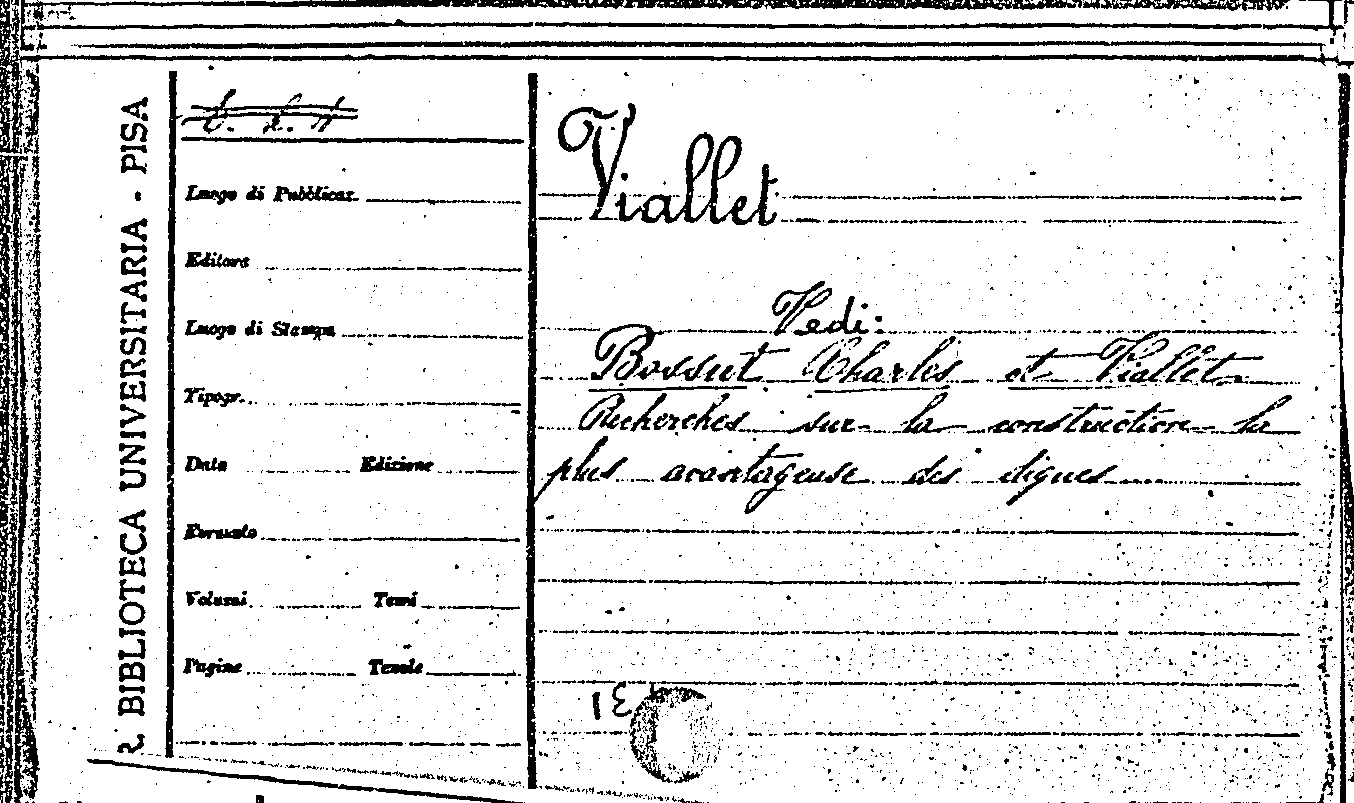 R. BIBLIOTECA UNIVERSITARIA - PISA
Luogo di Pubblicaz.
Editore
Luogo di Stampa
Tipogr.
Data Edizione
Formato
Volumi Tomi
Pagine Tavole
Viallet
Vedi:
Bossut Charles et Viallet
Recherches sur la construction la
plus avantageuse des digues